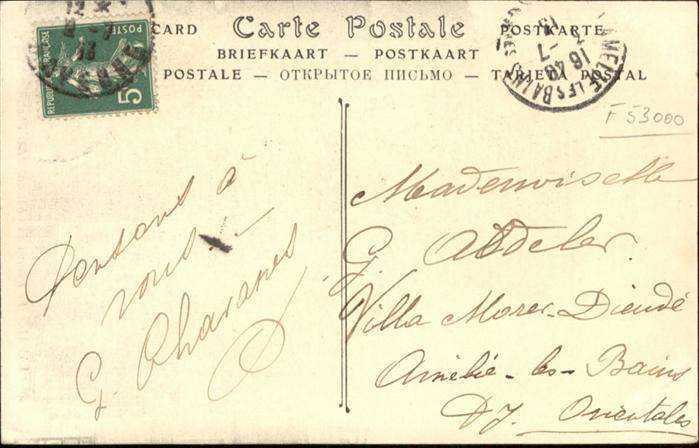 CARD Carte Postale POSTKARTE
BRIEFKAART — POSTKAART
POSTALE — ОТКРЫТОЕ ПИСЬМО — TARJETA POSTAL
REPUBLIQUE FRANÇAISE
POSTES
5
AMELIE-LES-BAINS
18 40
F 53000
Pensons à
vous
G.
Mademoiselle
G.
Villa
Amélie-les-Bains
Py. Orientales